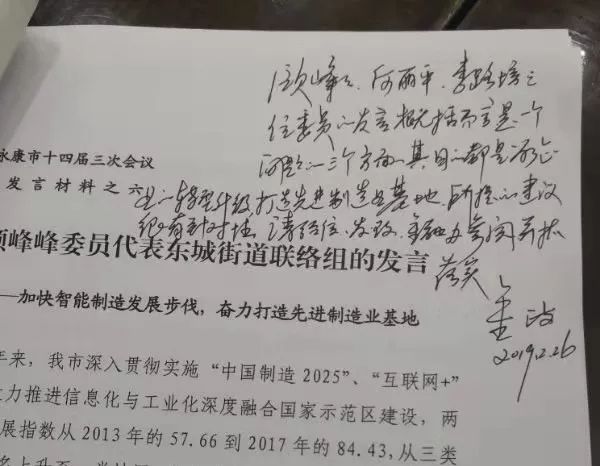 顾峰峰、何丽平、李路培三
位委员的发言概括而言是一个
问题的三个方面，其目的都是推进
工业转型升级,打造先进制造业基地。所提的建议
很有针对性。请经信、发改、金融办参阅并抓
落实
金政
2019.2.26
永康市十四届三次会议
发言材料之六
顾峰峰委员代表东城街道联络组的发言
——加快智能制造发展步伐，奋力打造先进制造业基地
年来，我市深入贯彻实施“中国制造2025”、“互联网+”
大力推进信息化与工业化深度融合国家示范区建设，两
展指数从2013年的57.66到2017年的84.43,从三类